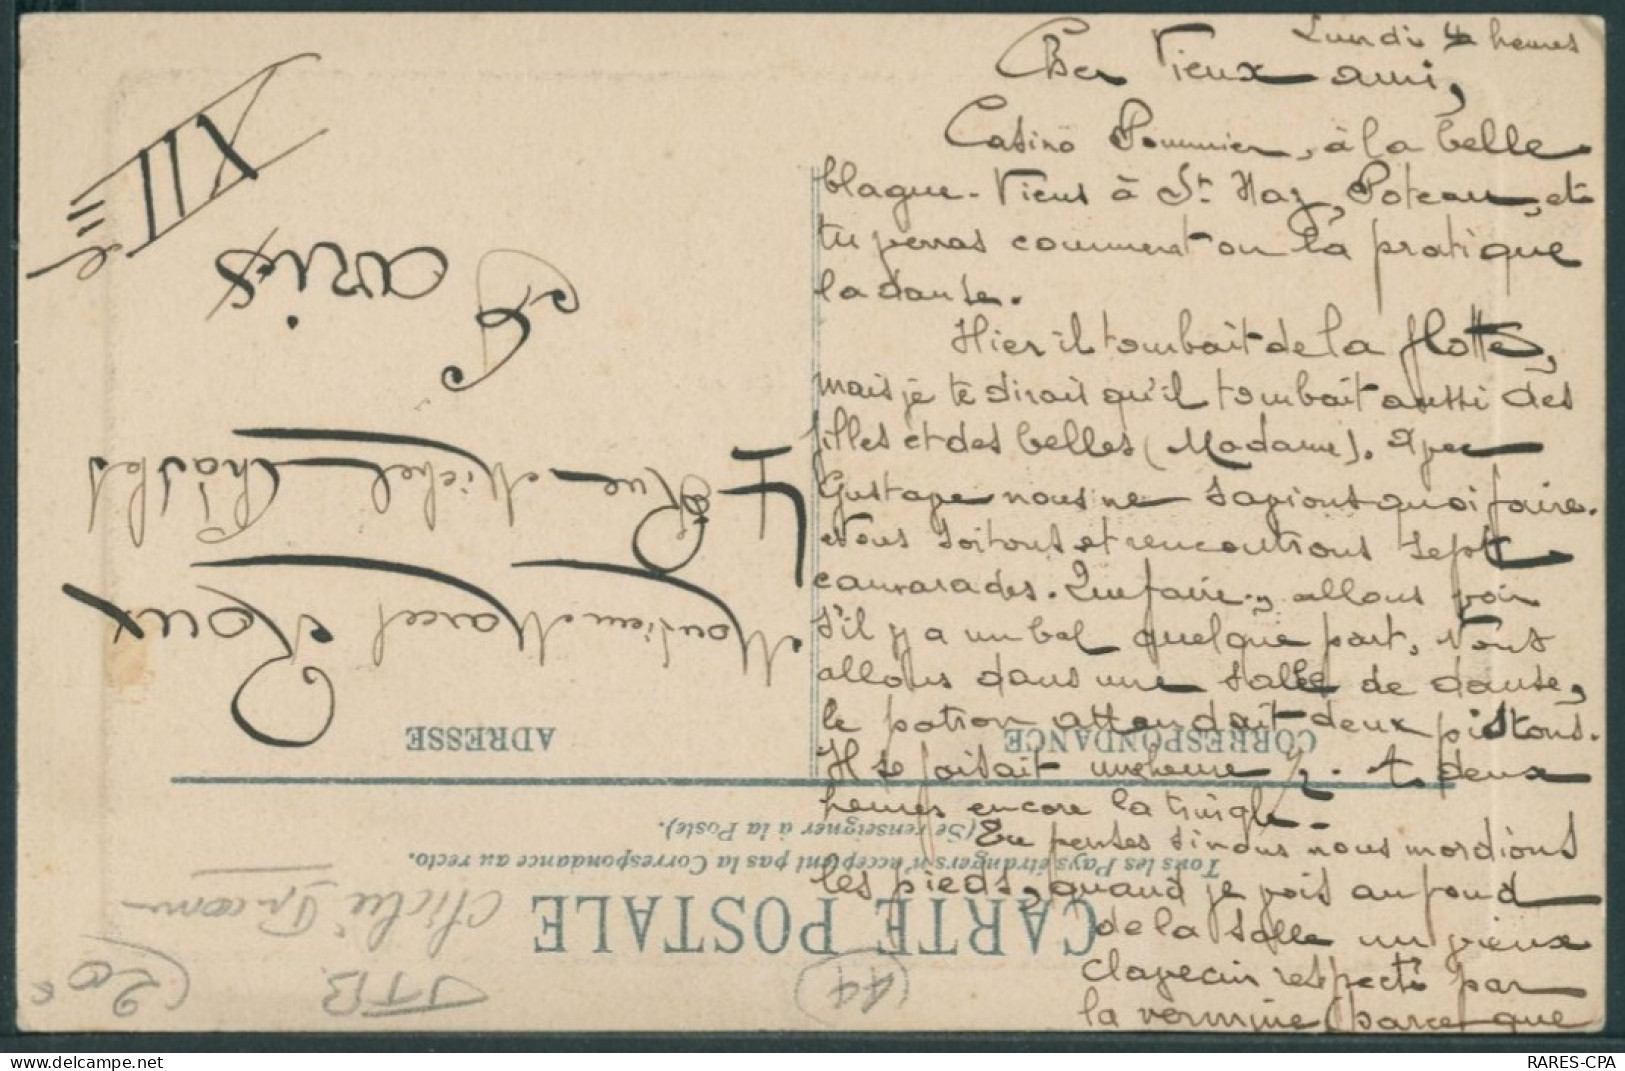 Lundi 4 heures
Cher Vieux ami,
Casino Pommier, à la belle
blague. Viens à St Naz, Poteau, et
tu verras comment on la pratique
la danse.
Hier il tombait de la flotte,
mais je te dirait qu'il tombait aussi des
filles et des belles (Madame). Avec
Gustave nous ne savions quoi faire.
Nous sortons et rencontrons sept
camarades. Que faire, allons voir
s'il y a un bal quelque part. Nous
allons dans une salle de danse,
le patron attendait deux pistons.
Il se faisait une heure 1/2. à deux
heures encore la tringle.
Tu penses si nous nous mordions
les pieds, quand je vois au fond
de la salle un vieux
clavecin respecté par
la vermine (parce que
CARTE POSTALE
Tous les Pays étrangers n'acceptent pas la Correspondance au recto.
(Se renseigner à la Poste).
CORRESPONDANCE
ADRESSE
Monsieur Marcel Roux
7 Rue Michel Chasles
Paris
XIIe
(44)
JTB
(20€
Cliché
RARES-CPA